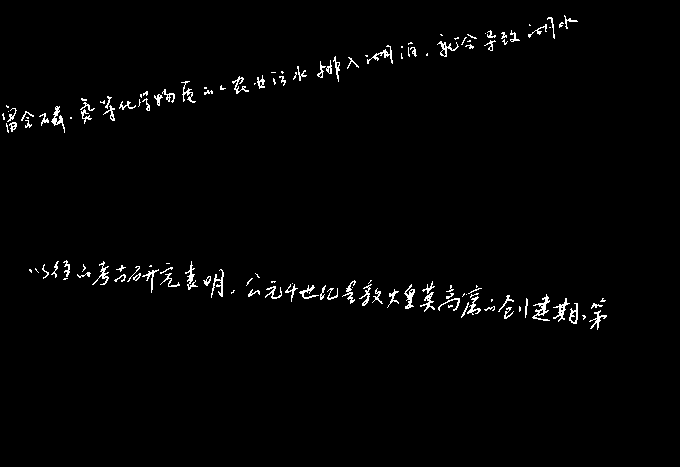 富含磷、氮等化学物质的农业污水排入湖泊，就会导致湖水
以往的考古研究表明，公元4世纪是敦煌莫高窟的创建期，第